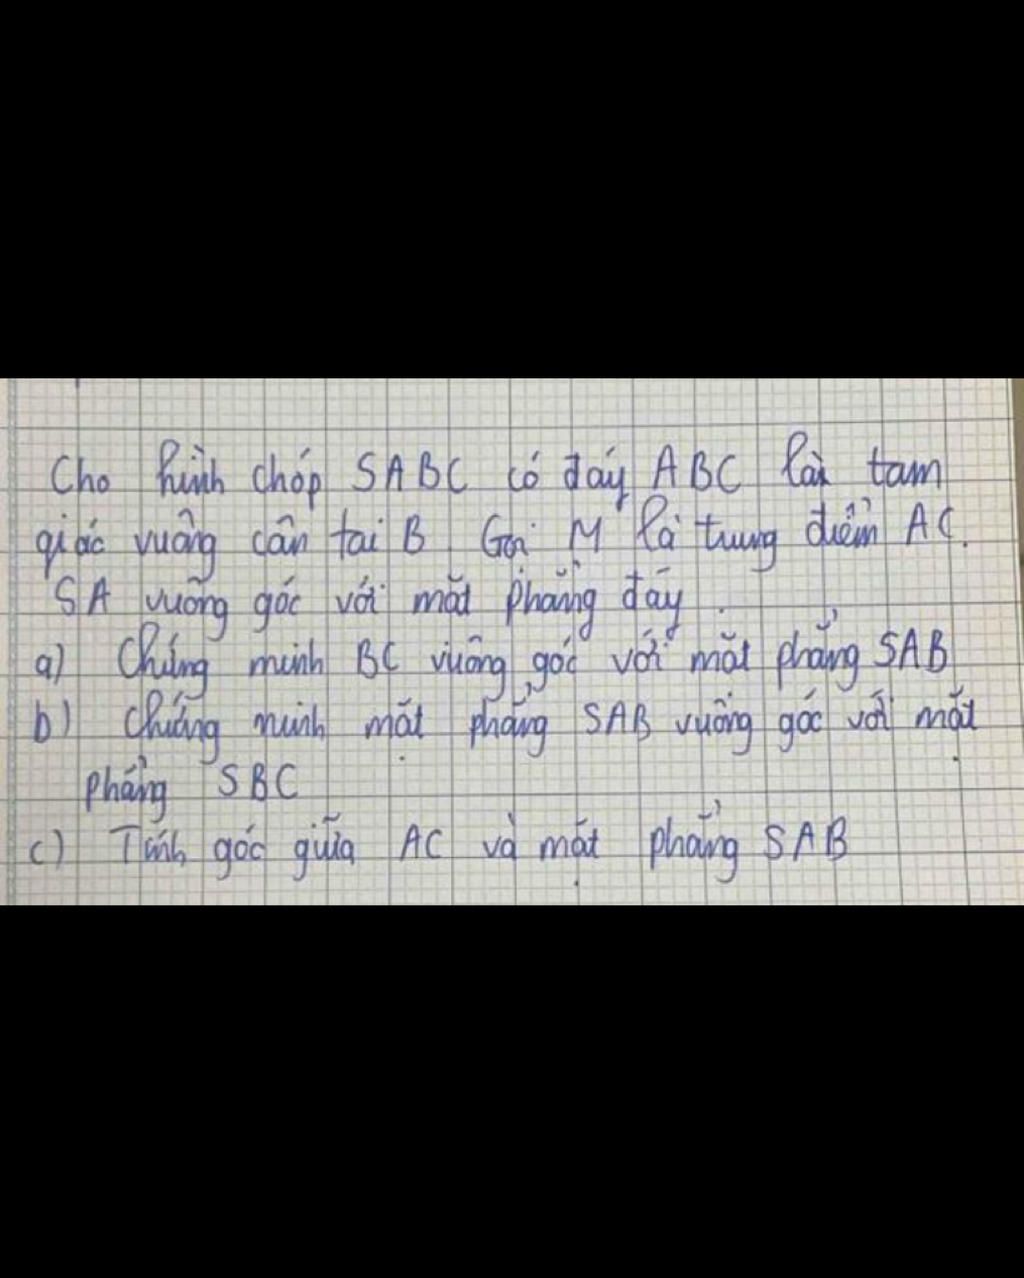 Cho hình chóp SABC có đáy ABC là tam
giác vuông cân tại B. Gọi M là trung điểm AC.
SA vuông góc với mặt phẳng đáy.
a) Chứng minh BC vuông góc với mặt phẳng SAB
b) Chứng minh mặt phẳng SAB vuông góc với mặt
phẳng SBC
c) Tính góc giữa AC và mặt phẳng SAB